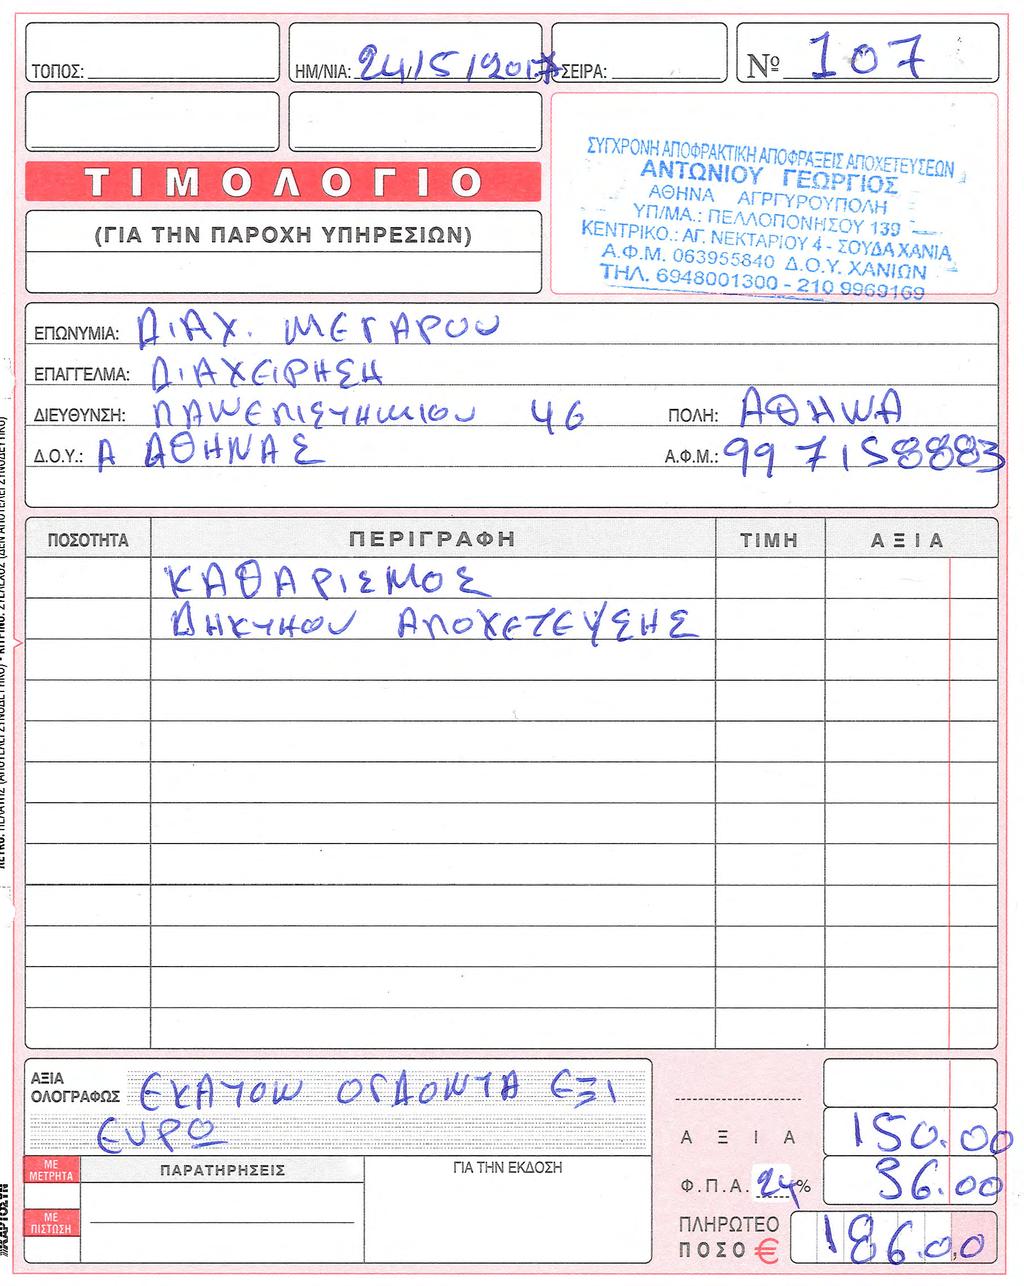 ΤΟΠΟΣ:
ΗΜ/ΝΙΑ: 24/5/2017
ΣΕΙΡΑ:
Νº 107
ΤΙΜΟΛΟΓΙΟ
(ΓΙΑ ΤΗΝ ΠΑΡΟΧΗ ΥΠΗΡΕΣΙΩΝ)
ΣΥΓΧΡΟΝΗ ΑΠΟΦΡΑΚΤΙΚΗ ΑΠΟΦΡΑΞΕΙΣ ΑΠΟΧΕΤΕΥΣΕΩΝ
ΑΝΤΩΝΙΟΥ ΓΕΩΡΓΙΟΣ
ΑΘΗΝΑ ΑΓΡΓΥΡΟΥΠΟΛΗ
ΥΠ/ΜΑ.: ΠΕΛΛΟΠΟΝΗΣΟΥ 139
ΚΕΝΤΡΙΚΟ.: ΑΓ. ΝΕΚΤΑΡΙΟΥ 4 - ΣΟΥΔΑ ΧΑΝΙΑ
Α.Φ.Μ. 063955840 Δ.Ο.Υ. ΧΑΝΙΩΝ
ΤΗΛ. 6948001300 - 210 9969169
ΕΠΩΝΥΜΙΑ: ΔΙΑΧ. ΜΕΓΑΡΟΥ
ΕΠΑΓΓΕΛΜΑ: ΔΙΑΧΕΙΡΗΣΗ
ΔΙΕΥΘΥΝΣΗ: ΠΑΝΕΠΙΣΤΗΜΙΟΥ 46 ΠΟΛΗ: ΑΘΗΝΑ
Δ.Ο.Υ.: Α ΑΘΗΝΑΣ Α.Φ.Μ.: 997158883
ΠΟΣΟΤΗΤΑ ΠΕΡΙΓΡΑΦΗ ΤΙΜΗ ΑΞΙΑ
ΚΑΘΑΡΙΣΜΟΣ
ΔΗΚΤΗΟΥ ΑΠΟΧΕΤΕΥΣΗΣ
ΑΞΙΑ ΟΛΟΓΡΑΦΩΣ ΕΚΑΤΟΝ ΟΓΔΟΝΤΑ ΕΞΙ
ΕΥΡΩ
ΑΞΙΑ 150.00
ΜΕ ΜΕΤΡΗΤΑ
ΠΑΡΑΤΗΡΗΣΕΙΣ
ΓΙΑ ΤΗΝ ΕΚΔΟΣΗ
Φ.Π.Α. 24% 36.00
ΜΕ ΠΙΣΤΩΣΗ
ΠΛΗΡΩΤΕΟ
ΠΟΣΟ € 186.00